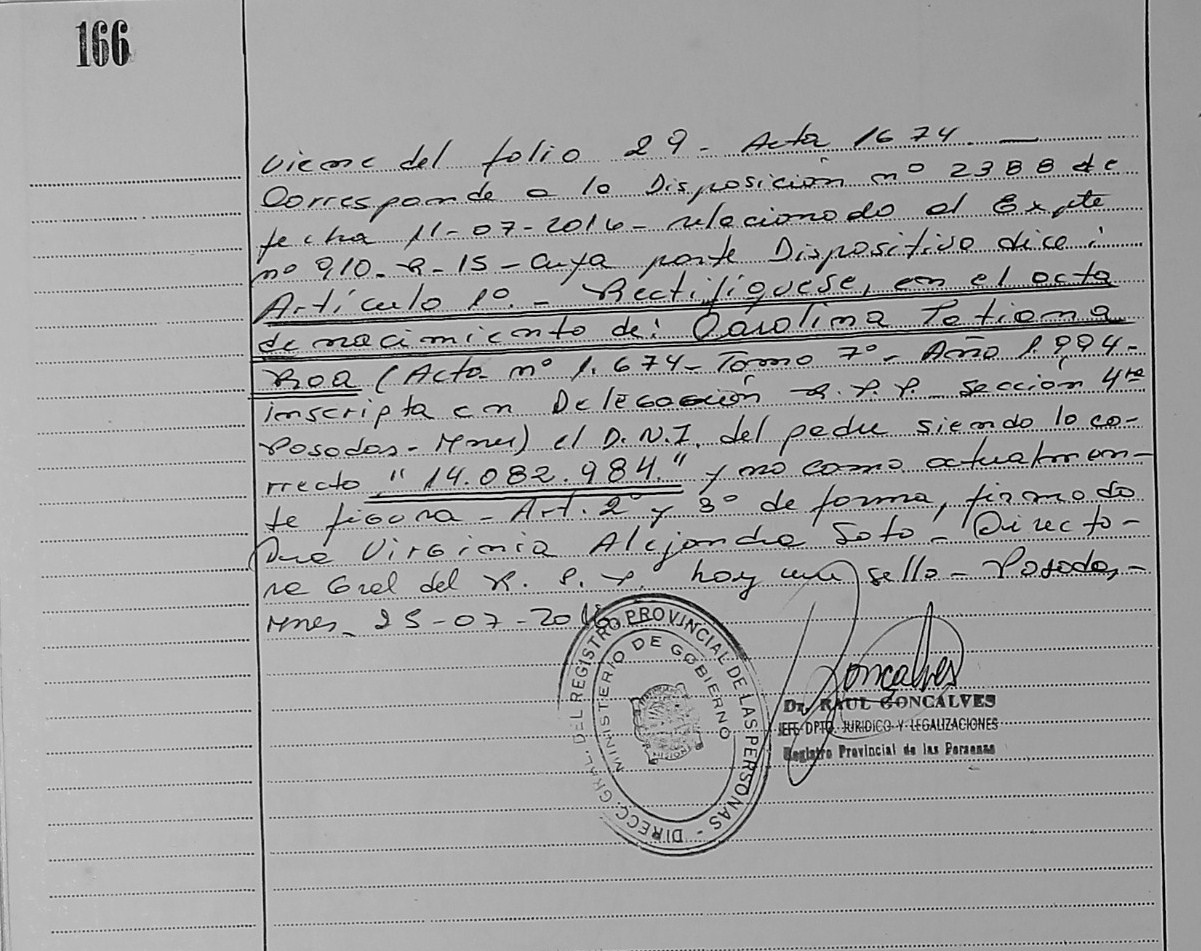 166
Viene del folio 29 - Acta 1674 -
Corresponde a la Disposición nº 2388 de
fecha 11-07-2016 - relacionado al Expte
nº 910-R-15 - cuya parte Dispositiva dice:
Artículo 1º.- Rectifíquese, en el acta
de nacimiento de: Carolina Tatiana
Roa (Acta nº 1.674 - Tomo 7º - Año 1.994 -
inscripta en Delegación R.P.P. sección 4ta
Posadas - Mnes) el D.N.I. del padre siendo lo co-
rrecto "14.082.984." y no como actualmen-
te figura - Art. 2º y 3º de forma, firmado
Dra Virginia Alejandra Soto - Directo-
ra Gral del R.P.P. hay un sello - Posadas, -
Mnes - 25-07-2016
DIRECC. GRAL. DEL REGISTRO PROVINCIAL DE LAS PERSONAS -
MINISTERIO DE GOBIERNO
Gonçalves
Dr. RAUL GONCALVES
JEFE DPTO. JURIDICO Y LEGALIZACIONES
Registro Provincial de las Personas